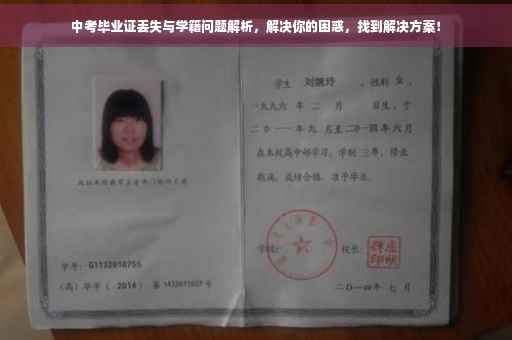 中考毕业证丢失与学籍问题解析，解决你的困惑，找到解决方案！
学生 刘婉玲 ，性别 女 ，
一九九六 年 二 月 日生，于
二〇一一 年 九 月至 二〇一四 年 六 月
在本校高中部学习，学制 三 年，修业
期满，成绩合格，准予毕业。
学校： 校长：
学号： G1132010755
（高）毕字〔 2014 〕第 1432011027 号
二〇一四年 七 月